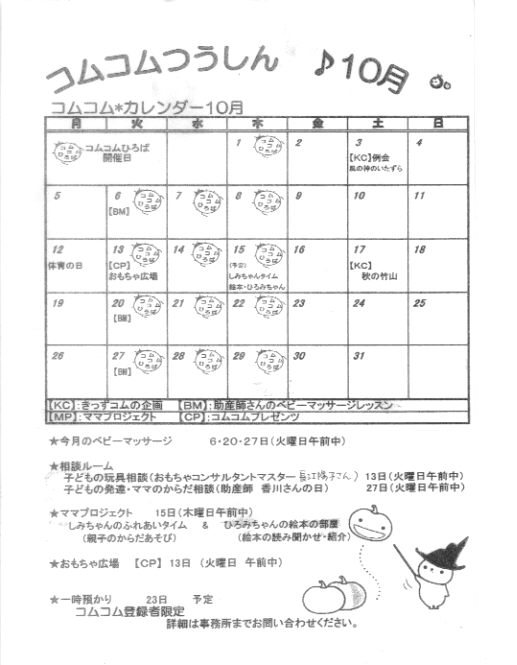 コムコムつうしん ♪10月
コムコム*カレンダー10月
月 火 水 木 金 土 日
コムコムひろば
開催日
1 コムコムひろば 2 3 4
【KC】例会
風の神のいたずら
5 6 コムコムひろば 7 コムコムひろば 8 コムコムひろば 9 10 11
【BM】
12 13 コムコムひろば 14 コムコムひろば 15 コムコムひろば 16 17 18
体育の日 【CP】 (予定) 【KC】
おもちゃ広場 しみちゃんタイム 秋の竹山
絵本・ひろみちゃん
19 20 コムコムひろば 21 コムコムひろば 22 コムコムひろば 23 24 25
【BM】
26 27 コムコムひろば 28 コムコムひろば 29 コムコムひろば 30 31
【BM】
【KC】:きっずコムの企画 【BM】:助産師さんのベビーマッサージレッスン
【MP】:ママプロジェクト 【CP】:コムコムプレゼンツ
★今月のベビーマッサージ 6・20・27日(火曜日午前中)
★相談ルーム
子どもの玩具相談(おもちゃコンサルタントマスター 長江陽子さん) 13日(火曜日午前中)
子どもの発達・ママのからだ相談(助産師 香川さんの日) 27日(火曜日午前中)
★ママプロジェクト 15日(木曜日午前中)
しみちゃんのふれあいタイム & ひろみちゃんの絵本の部屋
(親子のからだあそび) (絵本の読み聞かせ・紹介)
★おもちゃ広場 【CP】 13日 (火曜日 午前中)
★一時預かり 23日 予定
コムコム登録者限定
詳細は事務所までお問い合わせください。